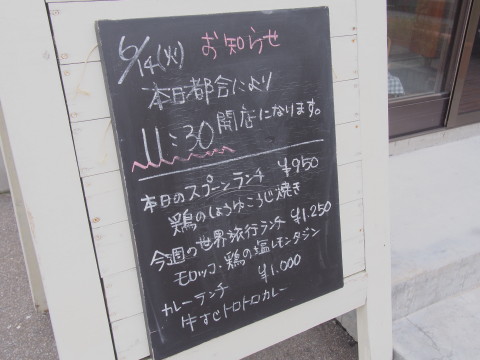 6/14(火) お知らせ
本日都合により
11:30 開店になります。
本日のスプーンランチ ¥950
鶏のしょうゆこうじ焼き
今週の世界旅行ランチ ¥1.250
モロッコ・鶏の塩レモンタジン
カレーランチ ¥1.000
牛すじトロトロカレー